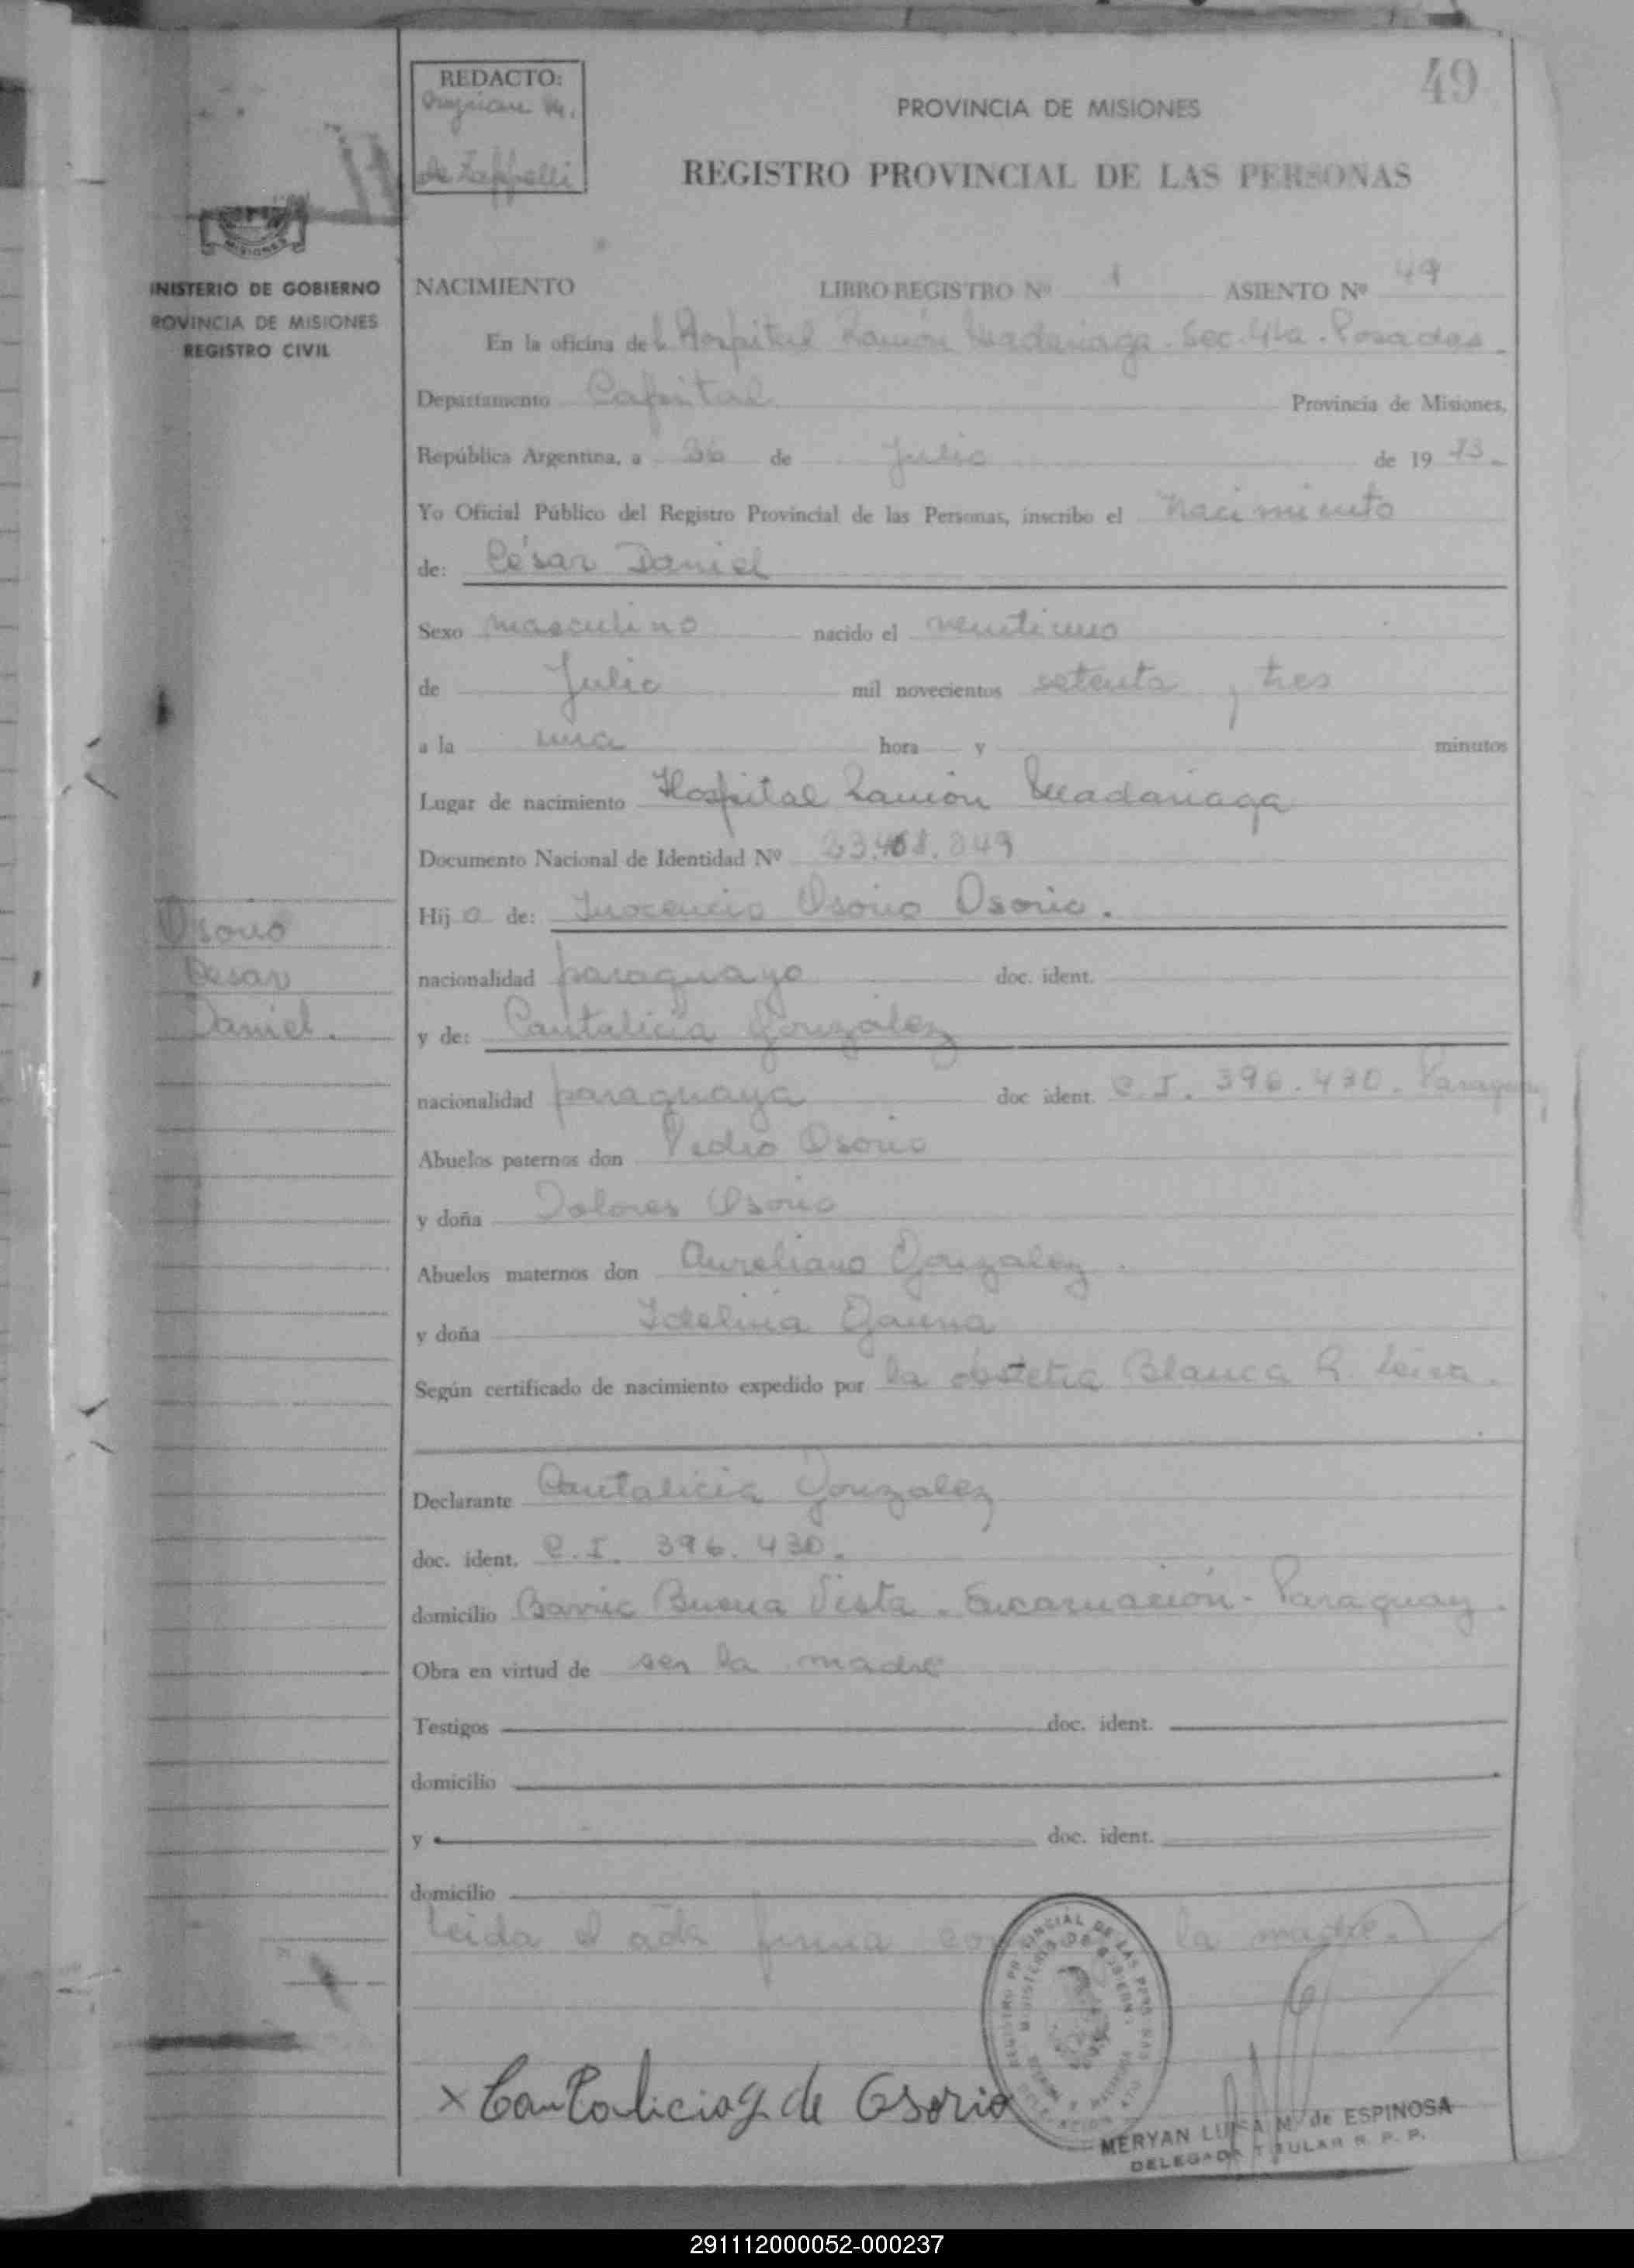 49
REDACTO:
de Zappelli
PROVINCIA DE MISIONES
REGISTRO PROVINCIAL DE LAS PERSONAS
MISIONES
INISTERIO DE GOBIERNO
ROVINCIA DE MISIONES
REGISTRO CIVIL
NACIMIENTO LIBRO REGISTRO Nº 1 ASIENTO Nº 49
En la oficina del Hospital Ramón Madariaga. Sec. 4ta. Posadas.
Departamento Capital Provincia de Misiones,
República Argentina, a de Julio de 1973.
Yo Oficial Público del Registro Provincial de las Personas, inscribo el nacimiento
de: César Daniel
Sexo masculino nacido el ventiuno
de Julio mil novecientos setenta y tres
a la una hora y minutos
Lugar de nacimiento Hospital Ramón Madariaga
Documento Nacional de Identidad Nº
Hijo de: Inocencio Osorio Osorio.
nacionalidad paraguayo doc. ident.
y de: Cantalicia Gonzalez
nacionalidad paraguaya doc ident. C.I. 396.430. Paraguay
Abuelos paternos don Pedro Osorio
y doña Dolores Osorio
Abuelos maternos don Aureliano Gonzalez.
y doña Idelina Gauna
Según certificado de nacimiento expedido por la obstetra Blanca R. Leiva.
Osorio
Cesar
Daniel.
Declarante Cantalicia Gonzalez
doc. ident. C.I. 396.430.
domicilio Barrio Buena Vista. Encarnación - Paraguay.
Obra en virtud de ser la madre
Testigos doc. ident.
domicilio
y doc. ident.
domicilio
Leida el acta firma la madre.
x Cantalicia g. de Osorio
MERYAN LUISA M. de ESPINOSA
DELEGADA TITULAR R. P. P.
291112000052-000237